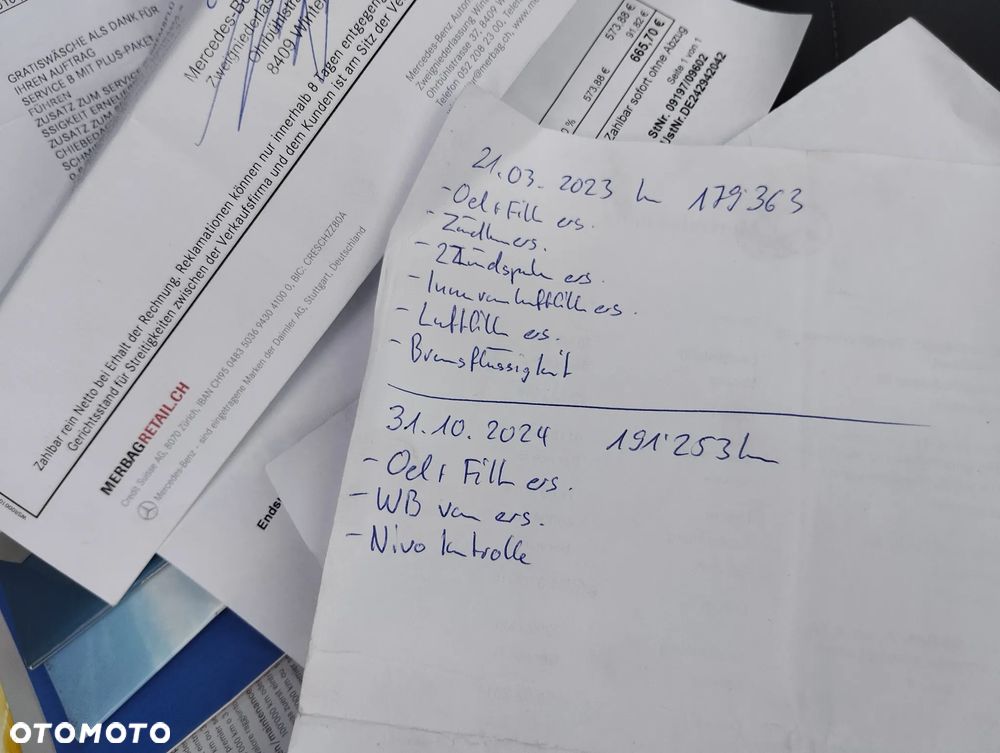 GRATISWÄSCHE ALS DANK FÜR
IHREN AUFTRAG
SERVICE B MIT PLUS-PAKET
FÜHREN
ZUSATZ ZUM SERVICE
SSIGKEIT ERNEUE
ZUSATZ ZUM S
CHIEBEDA
SCHM
Mercedes-Be
Zweigniederlas
Ohrbühlstr
8409 Winter
Zahlbar rein Netto bei Erhalt der Rechnung. Reklamationen können nur innerhalb 8 Tagen entgegeng
Gerichtsstand für Streitigkeiten zwischen der Verkaufsfirma und dem Kunden ist am Sitz der Ve
MERBAGRETAIL.CH
Credit Suisse AG, 8070 Zürich, IBAN CH95 0483 5036 9430 4100 0, BIC: CRESCHZZ80A
Mercedes-Benz - sind eingetragene Marken der Daimler AG, Stuttgart, Deutschland
Mercedes-Benz Autom
Zweigniederlassung Winte
Ohrbühlstrasse 37, 8409 W
Telefon 052 208 23 00,
@merbag.ch, www
573.88 €
91.82
665,70 €
573.88 €
0 %
Zahlbar sofort ohne Abzug
Seite 1 von 1
StNr. 09197/09602
UstNr.DE242942042
Ends
21.03.2023 km 179'363
- Oel + Filt ers.
- Zündkers.
- 2 Zündspulen ers.
- Innenraumluftfilt ers.
- Luftfilt ers.
- Bremsflüssigkeit
31.10.2024 191'253 km
- Oel + Filt ers.
- WB vorn ers.
- Nivo kontrolle
OTOMOTO